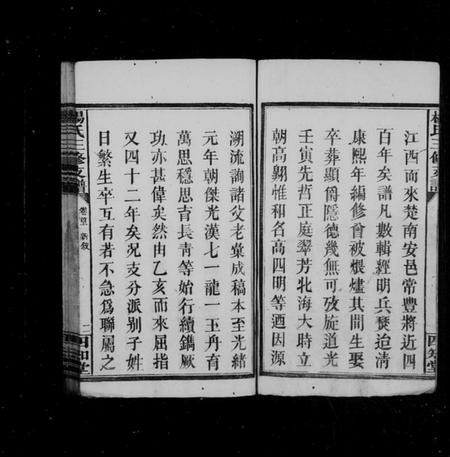 江西而來楚南安邑常豐將近四
百年矣譜凡數輯經明兵燹迨清
康熙年編修曾被煨燼其間生娶
卒葬顯爵隱德幾無可攷旋道光
壬寅先哲正庭翠芳北海大時立
朝高翺惟和名高四明等迺因源
溯流詢諸父老彙成稿本至光緒
元年朝傑光漢七一龍一玉丹有
萬思穩思育長青等始行續鐫厥
功亦甚偉矣然由乙亥而來屈指
又四十二年矣況支分派別子姓
日繁生卒互有若不急爲聯屬之
楊氏三修支譜
卷首
新敘
二
四知堂
楊氏三修支譜
四知堂